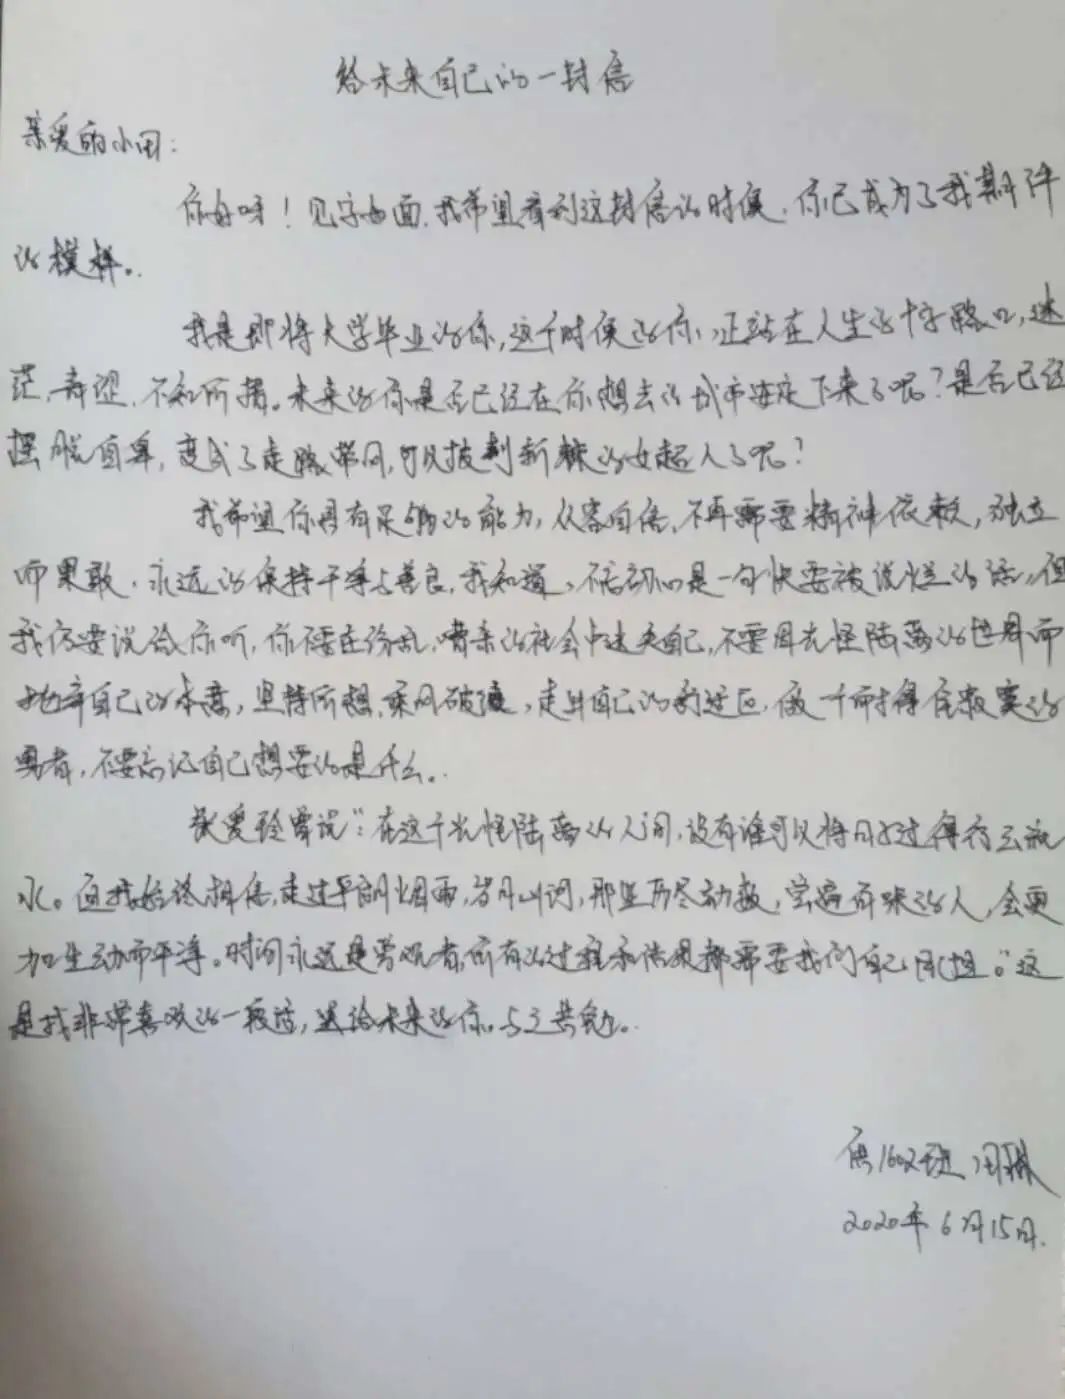 给未来自己的一封信
亲爱的小田:
你好呀!见字如面,我希望看到这封信的时候,你已成为了我期许
的模样。
我是即将大学毕业的你,这个时候的你,正站在人生的十字路口,迷
茫,无措,不知所措。未来的你是否已经在你想去的城市安定下来了呢?是否已经
摆脱自卑,变成了走路带风,可以披荆斩棘的女超人了呢?
我希望你具有足够的能力,从容自信,不再需要精神依赖,独立
而果敢,永远的保持干净与善良。我知道,不忘初心是一句快要被说烂的话,但
我仍要说给你听,你不要在纷乱,嘈杂的社会中迷失自己,不要因光怪陆离的世界而
抛弃自己的本意,坚持所想,乘风破浪,走出自己的舒适区,做一个耐得住寂寞的
勇者,不要忘记自己想要的是什么。
张爱玲曾说":在这个光怪陆离的人间,没有谁可以将日子过得行云流
水。但我始终相信,走过平湖烟雨,岁月山河,那些历尽劫数,尝遍百味的人,会更
加生动而干净。时间永远是旁观者,所有的过程和结果都需要我们自己承担。"这
是我非常喜欢的一段话,送给未来的你。与之共勉。
1602班 田
2020年6月15日.